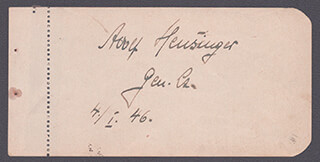 Adolf Heusinger
Gen. Lt.
4/I. 46.